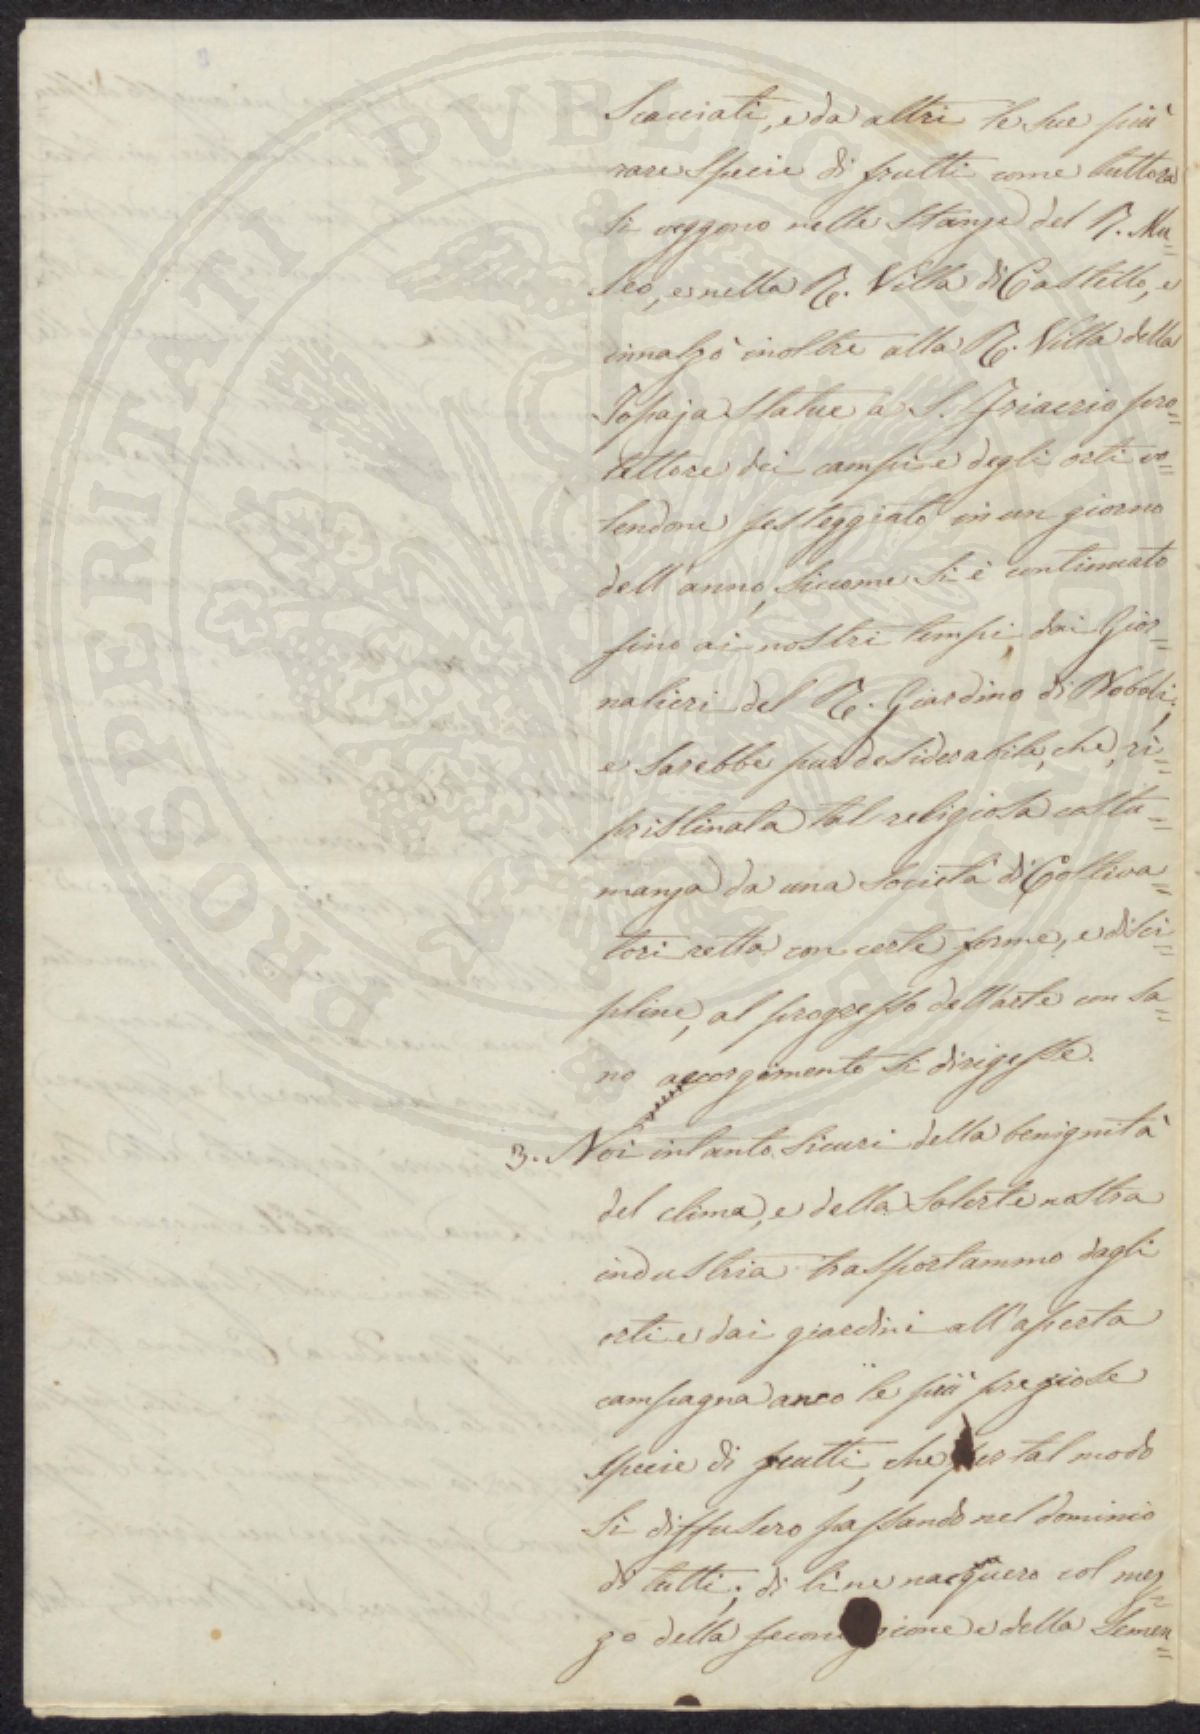 Scacciati, e da altri le sue più
rare specie di frutti come tuttora
si veggono nelle stanze del R. Mu=
seo, e nella R. Villa di Castello, e
innalzò inoltre alla R. Villa della
Topaja statue a S. Friacrio pro=
tettore dei campi e degli orti vo=
lendone festeggiato in un giorno
dell'anno, siccome si è continuato
fino ai nostri tempi dai Gior=
nalieri del R. Giardino di Boboli;
e sarebbe pur desiderabile, che, ri=
pristinata tal religiosa costu=
manza da una società di Coltiva=
tori retta con certe forme, e disci=
pline, al progresso dell'arte con sa=
no accorgimento si dirigesse.
3. Noi intanto sicuri della benignità
del clima, e della solerte nostra
industria trasportammo dagli
orti e dai giardini all'aperta
campagna anco le più pregiose
specie di frutti, che per tal modo
si diffusero passando nel dominio
di tutti; di lì ne nacquero col mez=
zo della fecondazione e della semen=
PROSPERITATI PVBLICAE